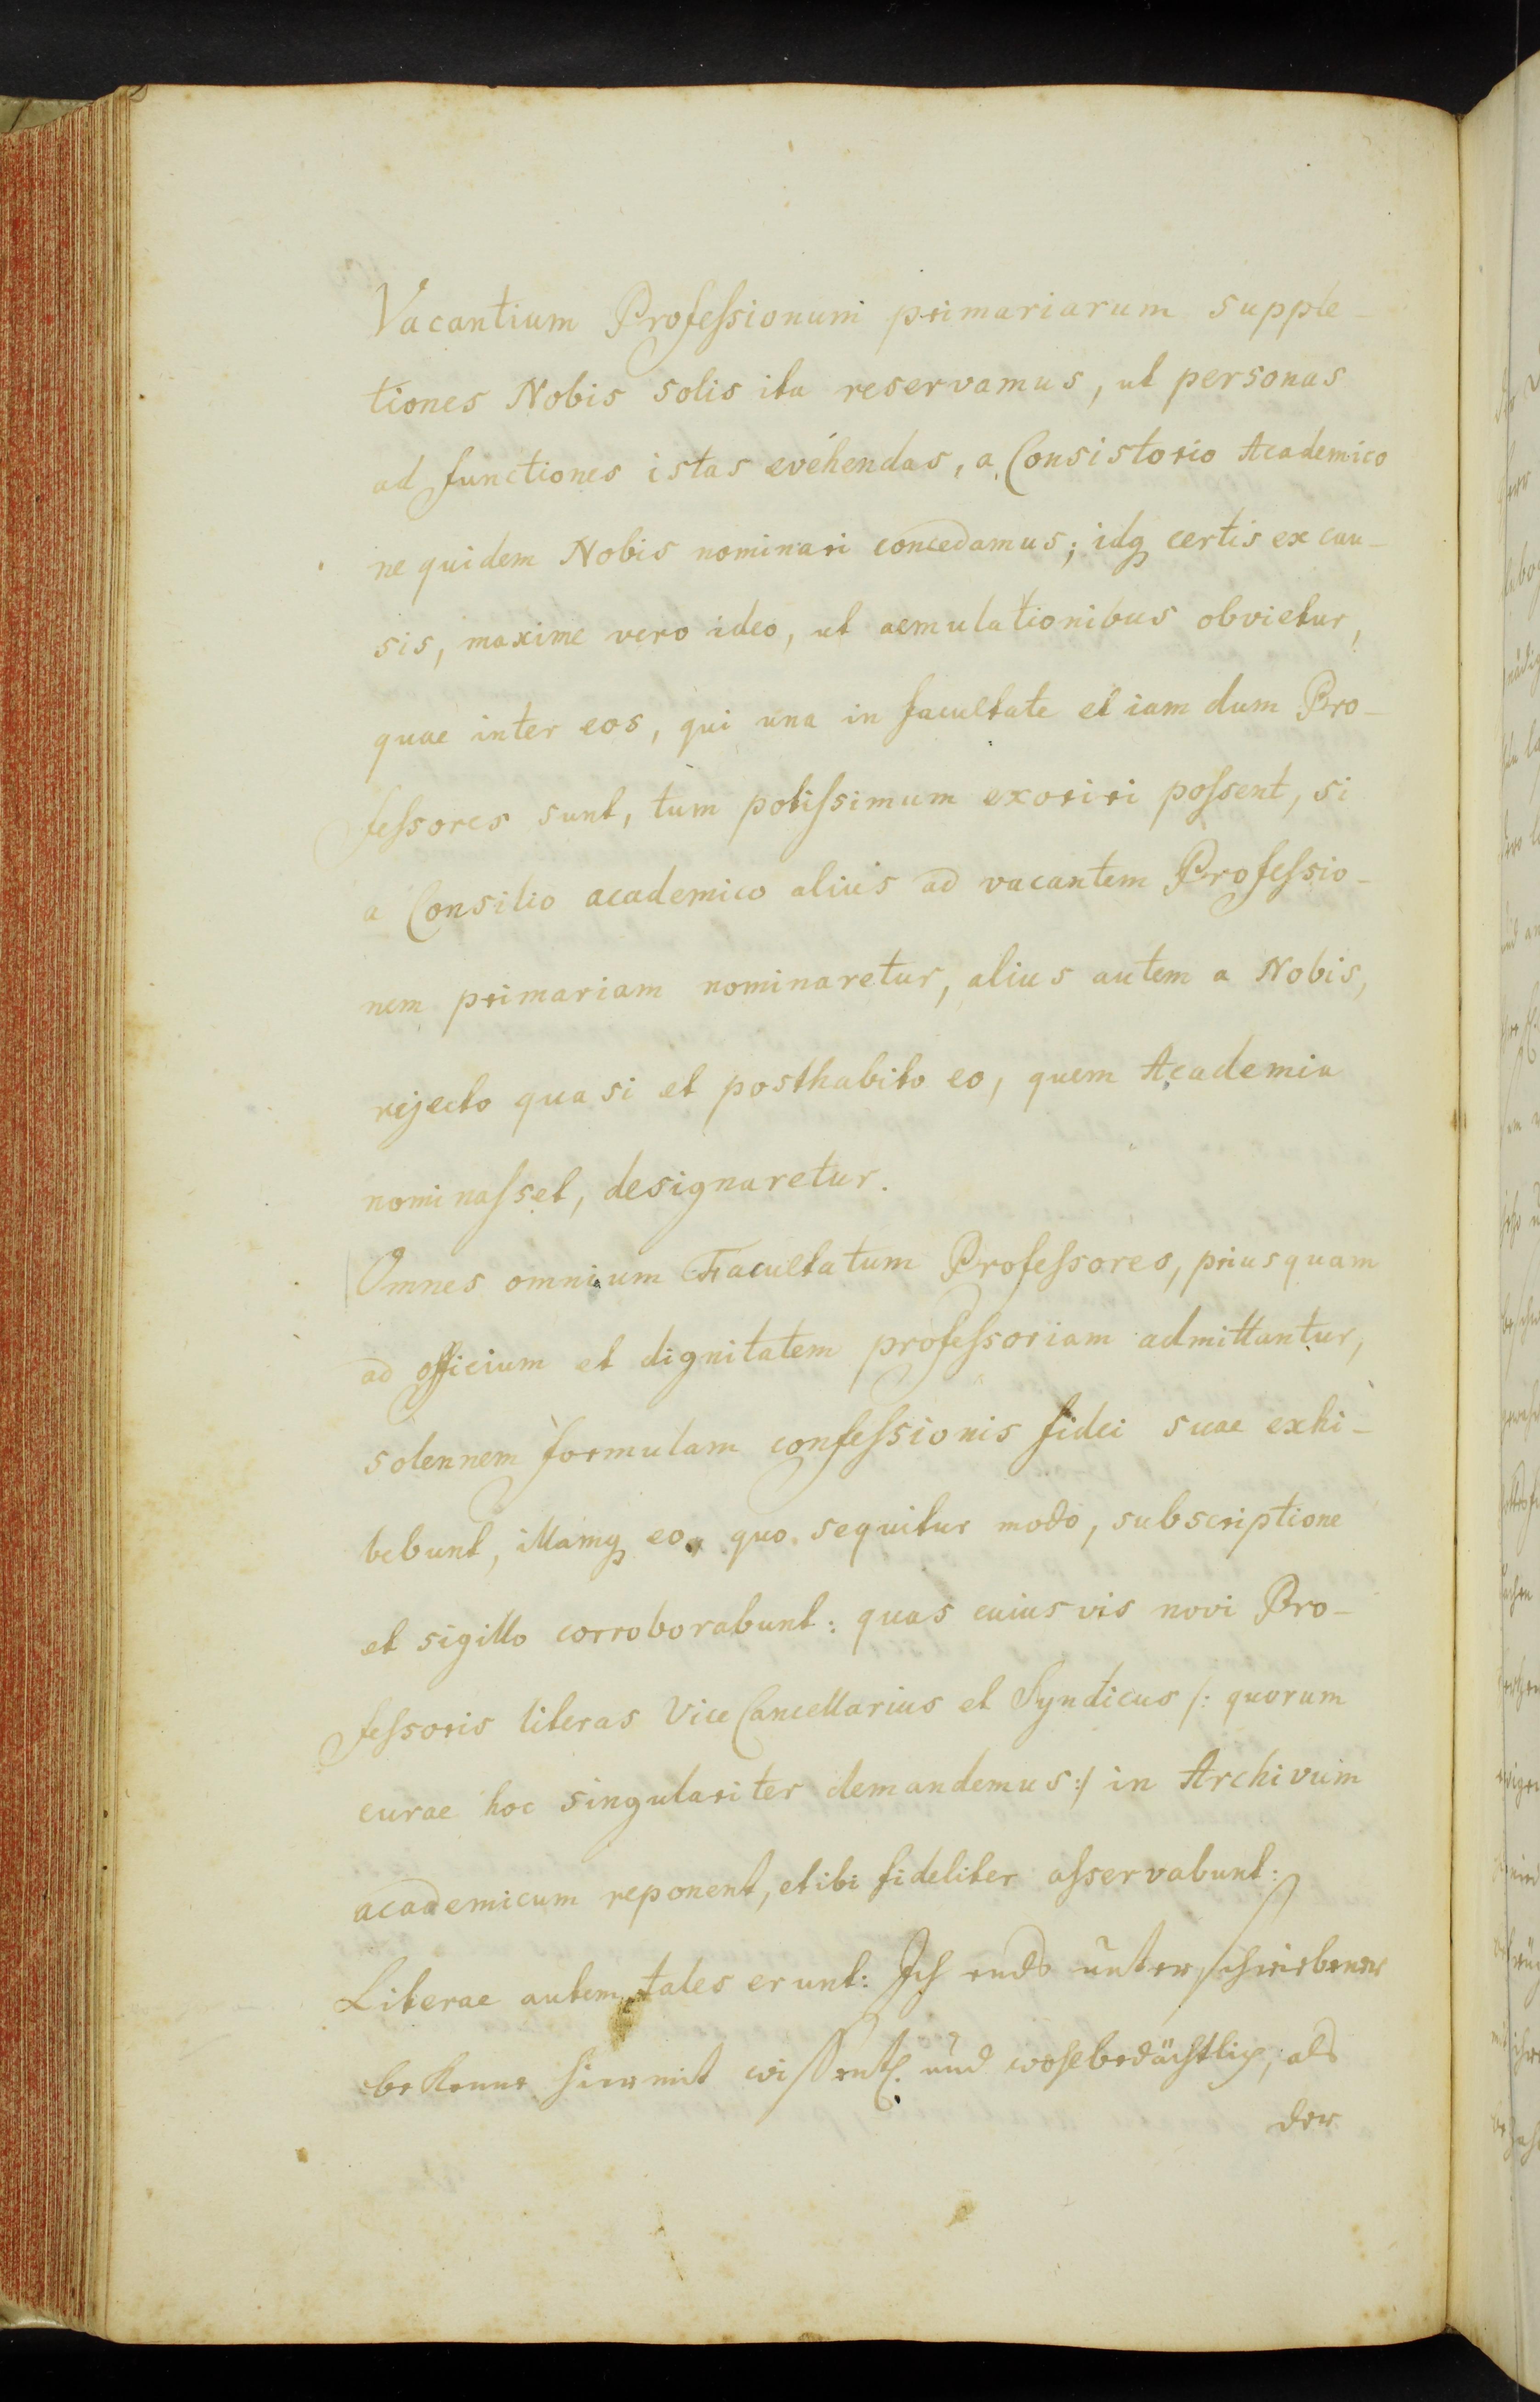 Vacantium Profeſsionum primariarum supple-
tiones Nobis solis ita reservamus, ut personas
ad functiones istas evehendas, a Consistorio Academico
ne quidem Nobis nominari concedamus; idq certis ex cau-
sis, maxime vero ideo, ut aemulationibus obvietur,
quae inter eos, qui una in facultate etiam dum Pro-
feſsores sunt, tum potiſsimum exoriri poſsent, si
a Consilio academico alius ad vacantem Profeſsio-
nem primariam nominaretur, alius autem a Nobis,
rejecto quasi et posthabito eo, quem Academia
nominaſset, designaretur.
Omnes omnium Facultatum Profeſsores, priusquam
ad officium et dignitatem profeſsoriam admittantur,
solennem formulam confeſsionis fidei suae exhi-
bebunt, illamq eo, quo sequitur modo, subscriptione
et sigillo corroborabunt: quas cuiusvis novi Pro-
feſsoris literas ViceCancellarius et Syndicus /: quorum
curae hoc singulariter demandemus :/ in Archivum
academicum reponent, et ibi fideliter aſservabunt:
Literae autem tales erunt: Ich ends unterschriebener
bekenne hiermit wißentl. und wohlbedächtlich, als
der